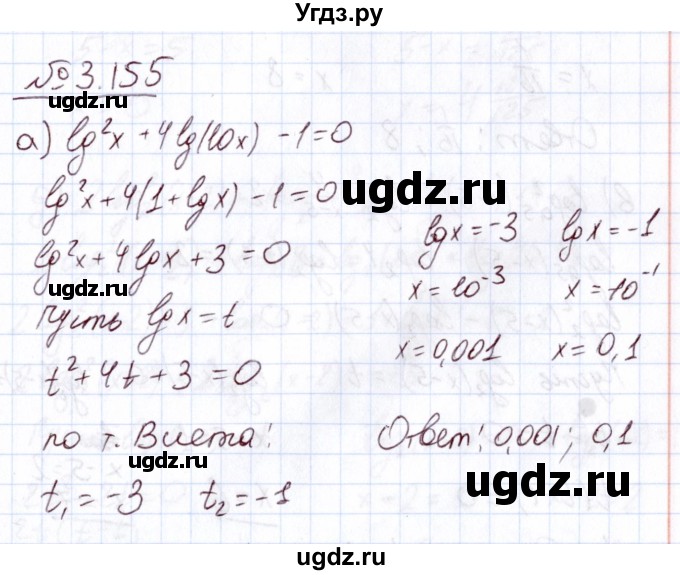 Угдз.ру
№ 3.155
ugdz.ru
а) lg²x + 4lg(10x) - 1 = 0
lg²x + 4(1 + lgx) - 1 = 0
ugdz.ru
lg²x + 4lgx + 3 = 0
ugdz.ru
пусть lgx = t
t² + 4t + 3 = 0
ugdz.ru
по т. Виета:
ugdz.ru
t₁ = -3 t₂ = -1
lgx = -3 lgx = -1
x = 10⁻³ x = 10⁻¹
ugdz.ru
x = 0,001 x = 0,1
Ответ: 0,001; 0,1
ugdz.ru
ugdz.ru